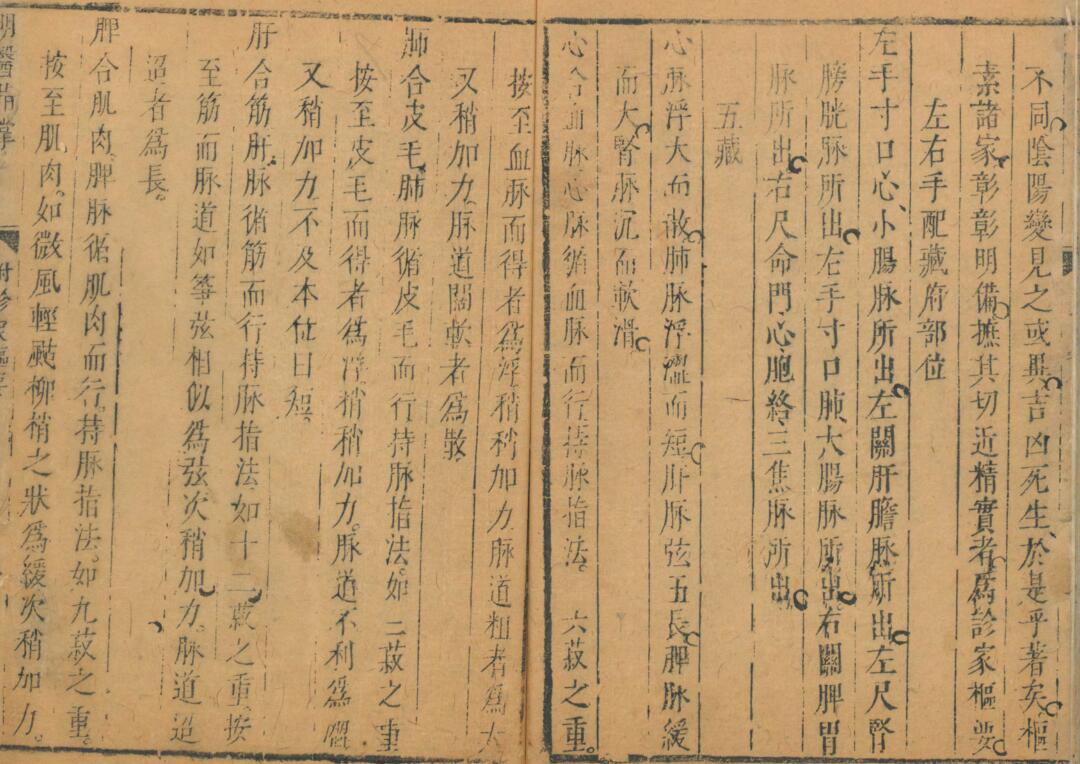 不同陰陽變見之或異吉凶死生於是乎著矣樞
素諸家彰彰明備摭其切近精實者為診家樞要
左右手配藏府部位
左手寸口心小腸脉所出左關肝膽脉所出左尺腎
膀胱脉所出左手寸口肺大腸脉所出右關脾胃
脉所出右尺命門心胞絡三焦脉所出
五藏
心脉浮大而散肺脉浮澀而短肝脉弦五長脾脉緩
而大腎脉沉而軟滑
心合血脉心脉循血脉而行持脉指法 六菽之重
按至血脉而得者為浮稍稍加力脉道粗者為大
又稍加力脉道闊軟者為散
肺合皮毛肺脉循皮毛而行持脉指法如三菽之重
按至皮毛而得者為浮稍稍加力脉道不利為澀
又稍加力不及本位曰短
肝合筋肝脉循筋而行持脉指法如十二菽之重按
至筋而脉道如箏弦相似為弦次稍加力脉道迢
迢者為長
脾合肌肉脾脉循肌肉而行持脉指法如九菽之重
按至肌肉如微風輕颭柳梢之狀為緩次稍加力
明醫指掌
附診家樞要